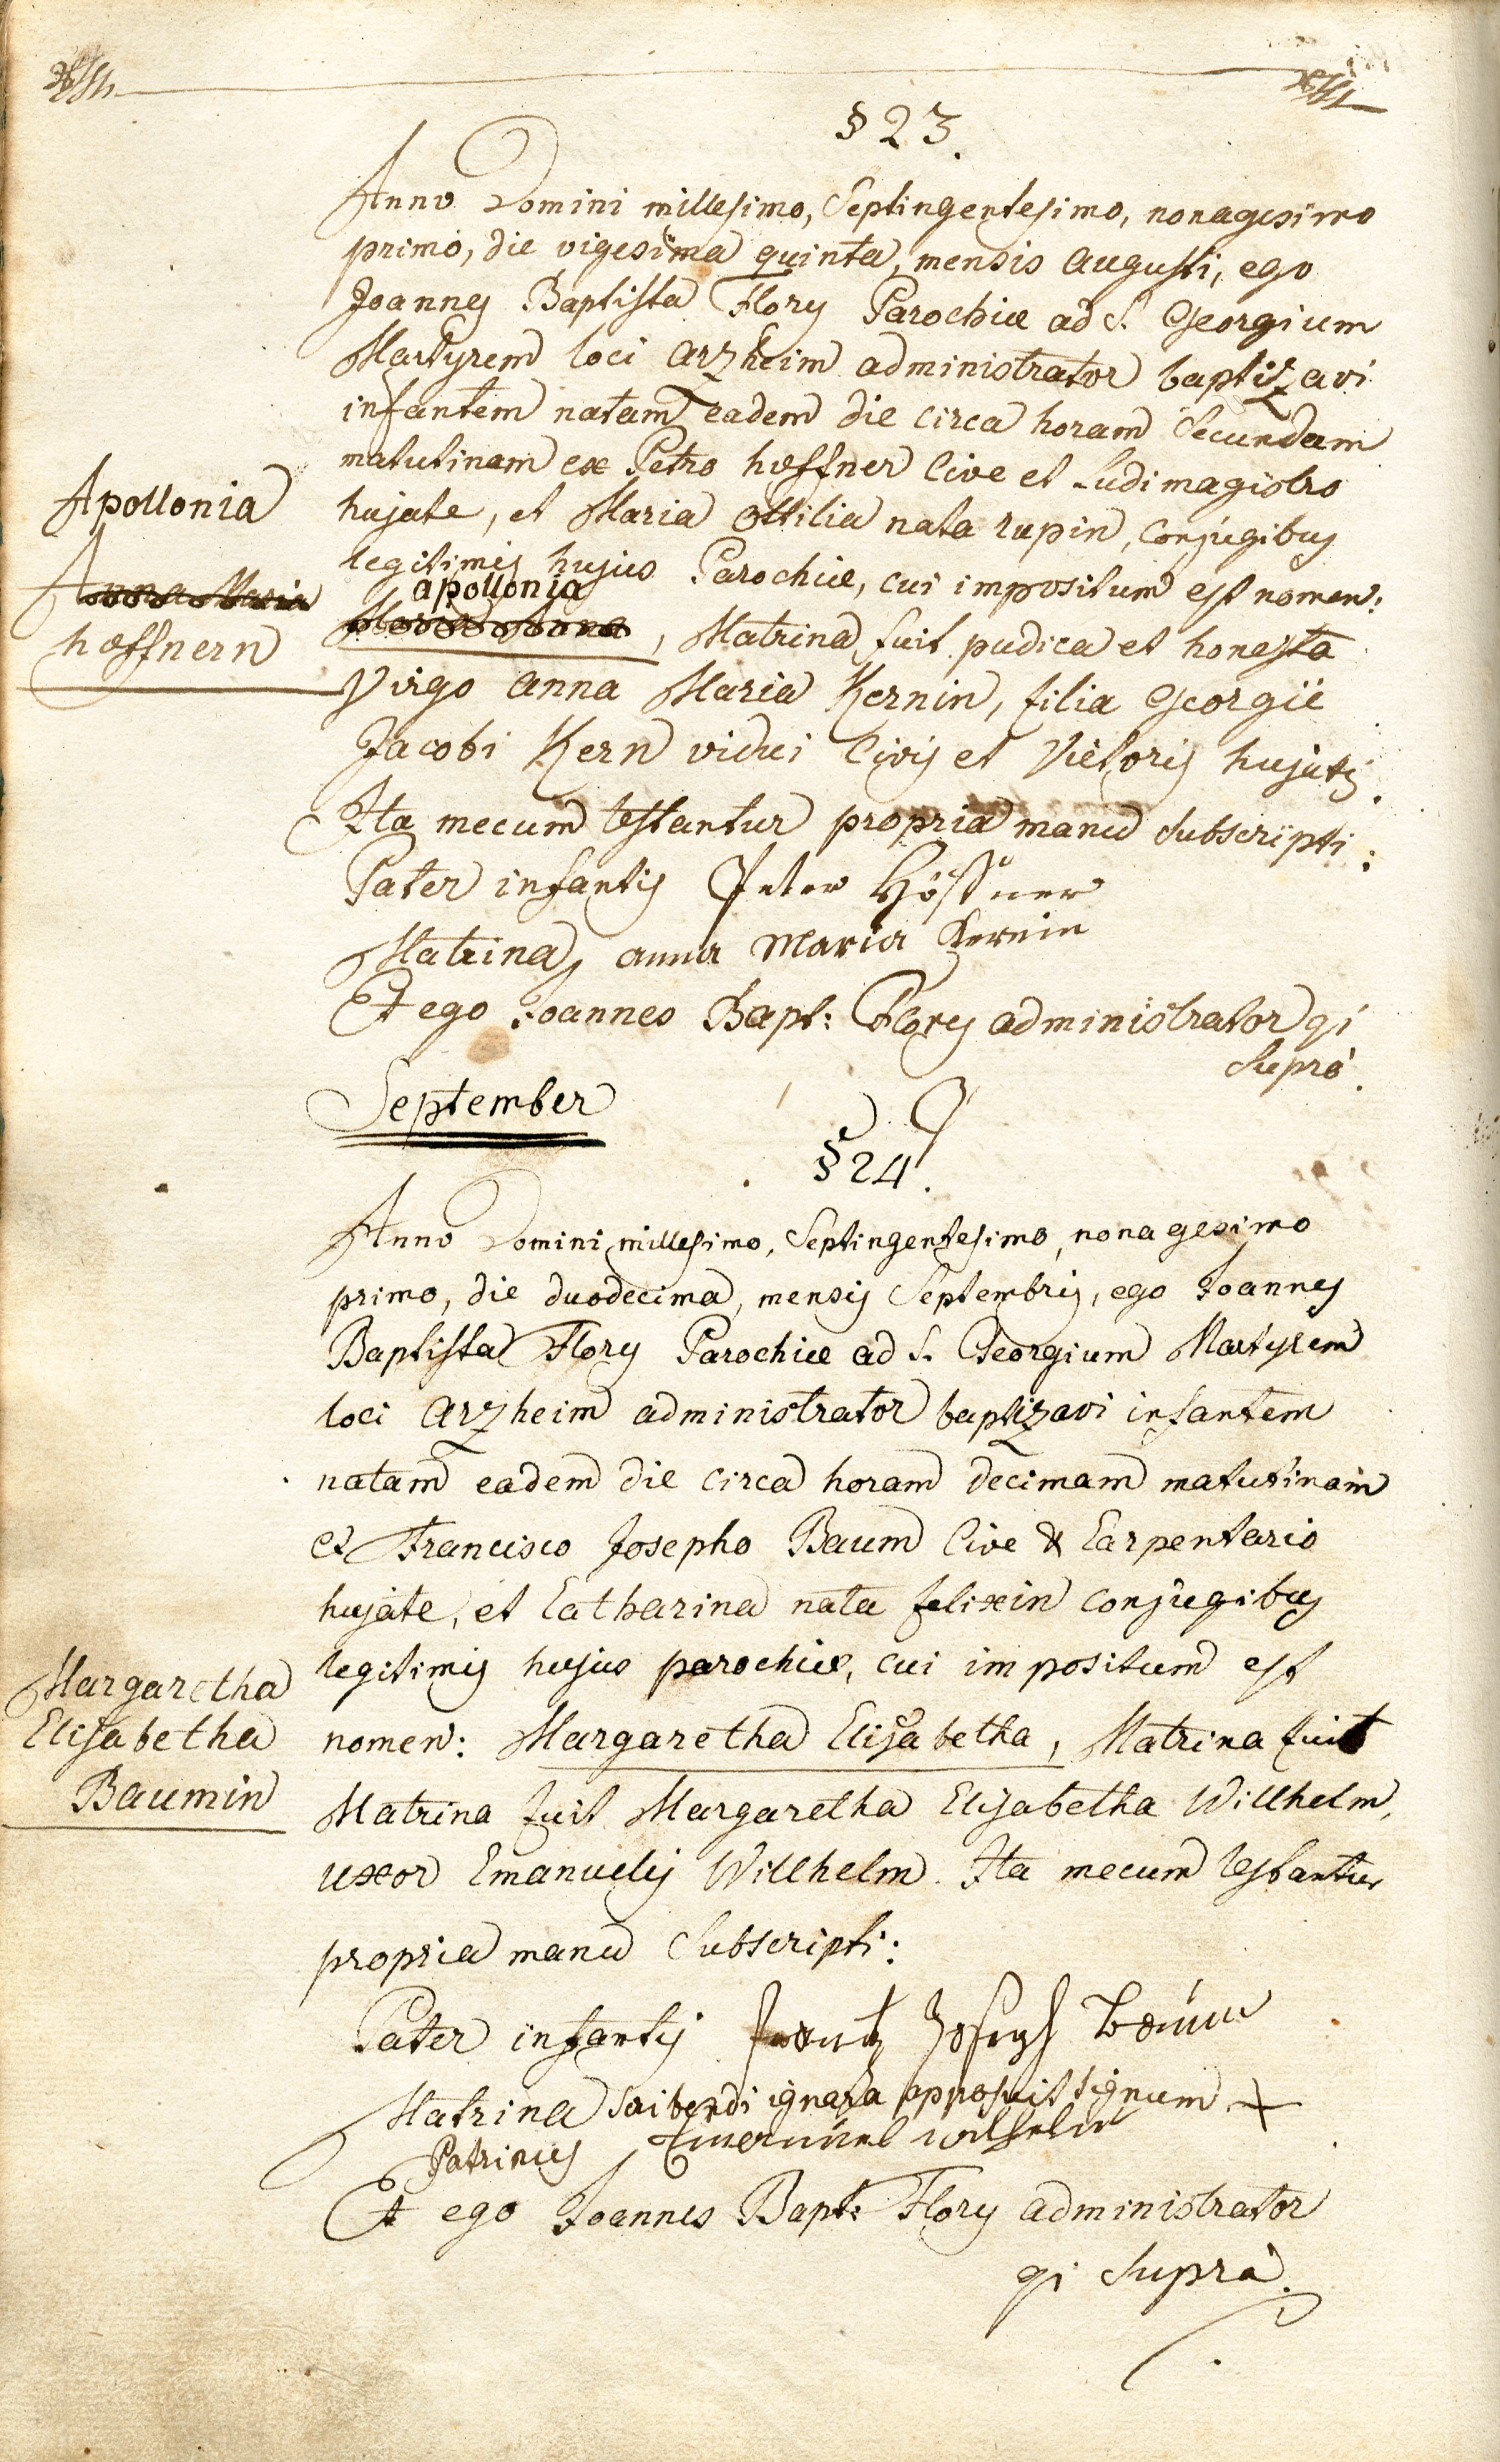 § 23.
Anno Domini millesimo, Septingentesimo, nonagesimo
primo, die vigesima quinta, mensis Augusti, ego
Joannes Baptista Flory Parochiæ ad S. Georgium
Martyrem loci Arzheim administrator baptizavi
infantem natam eadem die circa horam Secundam
matutinam ex Petro hoffner Cive et Ludimagistro
Apollonia
hujate, et Maria Ottilia nata rupin, Conjugibus
legitimis hujus Parochiæ, cui impositum est nomen:
apollonia
Anna Maria
, Matrina fuit pudica et honesta
hoffnern
Virgo Anna Maria Kernin, filia Georgii
Jacobi Kern vidui Civis et Vietoris hujatis.
Ita mecum testantur propria manu subscripti:
Pater infantis Peter Höffner
Matrina, anna Maria Kernin
Et ego Joannes Bapt: Flory administrator qi
supra.
September
§ 24.
Anno Domini millesimo, Septingentesimo, nonagesimo
primo, die duodecima, mensis Septembris, ego Joannes
Baptista Flory Parochiæ ad S. Georgium Martyrem
loci Arzheim administrator baptizavi infantem
natam eadem die circa horam decimam matutinam
ex Francisco Josepho Baum Cive & Carpentario
hujate, et Catharina nata felixin Conjugibus
legitimis hujus parochiæ, cui impositum est
Margaretha
Elisabetha
nomen: Margaretha Elisabetha, Matrina fuit
Baumin
Matrina fuit Margaretha Elisabetha Willhelm,
uxor Emanuelis Willhelm. Ita mecum testantur
propria manu Subscripti:
Pater infantis Frantz Joseph Baum
Matrina scribendi ignara apposuit signum +
Patrinus Emanuel wilhelm
Et ego Joannes Bapt: Flory administrator
qi supra.